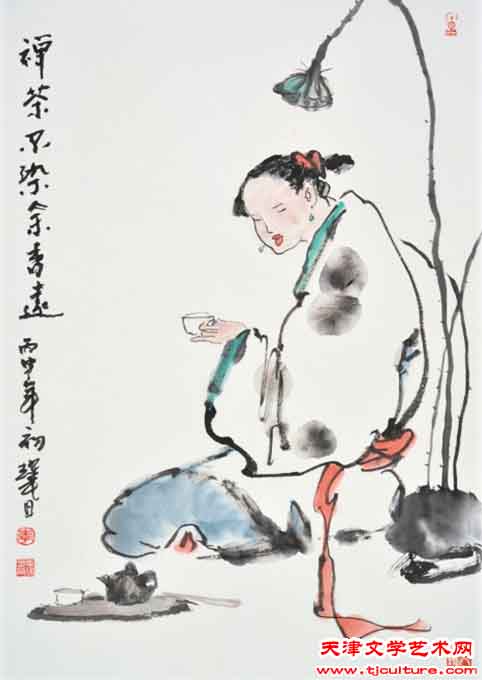 禅茶不染余香远
丙申年初
天津文学艺术网
www.tjculture.com